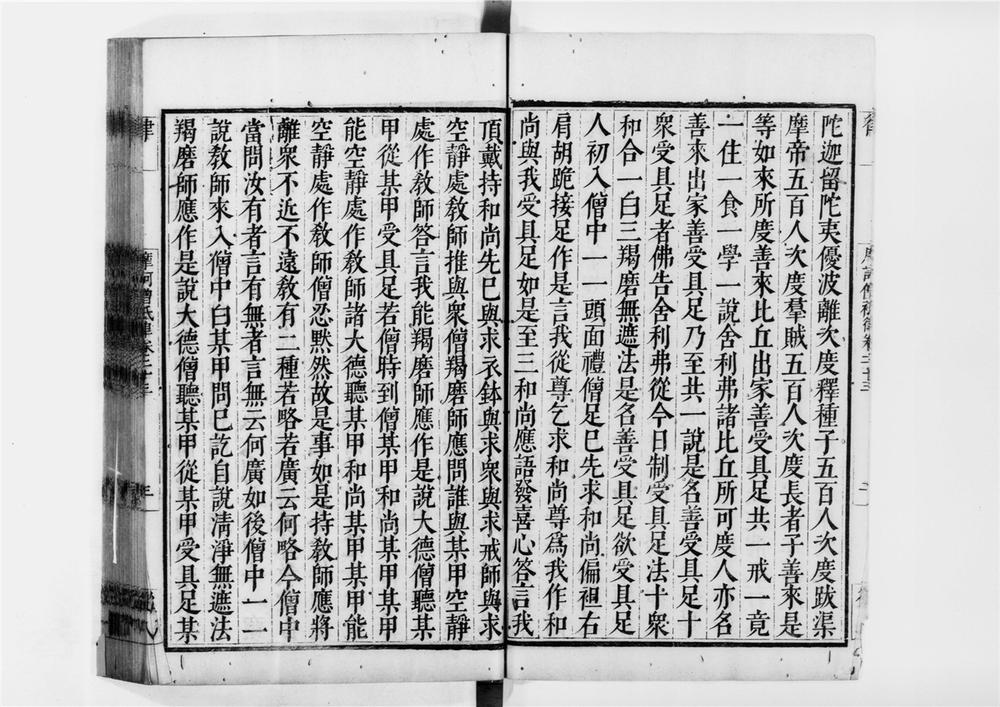 陀迦留陀夷優波離次度釋種子五百人次度跋渠
摩帝五百人次度羣賊五百人次度長者子善來是
等如來所度善來比丘出家善受具足共一戒一竟
一住一食一學一說舍利弗諸比丘所可度人亦名
善來出家善受具足乃至共一說是名善受具足十
衆受具足者佛告舍利弗從今日制受具足法十衆
和合一白三羯磨無遮法是名善受具足欲受具足
人初入僧中一一頭面禮僧足已先求和尚偏袒右
肩胡跪接足作是言我從尊乞求和尚尊爲我作和
尚與我受具足如是至三和尚應語發喜心答言我
頂戴持和尚先已與求衣鉢與求衆與求戒師與求
空靜處教師推與衆僧羯磨師應問誰與某甲空靜
處作教師答言我能羯磨師應作是說大德僧聽某
甲從某甲受具足若僧時到僧某甲和尚某甲某甲
能空靜處作教師諸大德聽某甲和尚某甲某甲能
空靜處作教師僧忍默然故是事如是持教師應將
離衆不近不遠教有二種若略若廣云何略今僧中
當問汝有者言有無者言無云何廣如後僧中一一
說教師來入僧中白某甲問已訖自說清淨無遮法
羯磨師應作是說大德僧聽某甲從某甲受具足某
律
摩訶僧祇律卷二十三
三